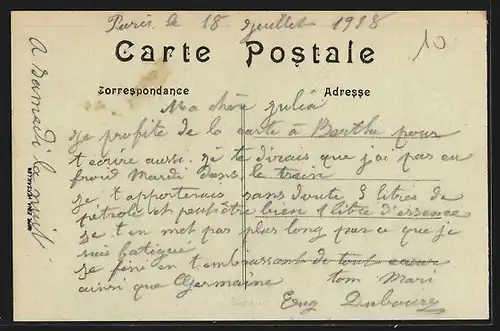 Paris le 18 juillet 1918
10
Carte Postale
Correspondance
Adresse
Ma chère Julia
Je profite de la carte à Berthe pour
t ecrire aussi. Je te dirais que j ai pas eu
froid Mardi dans le train
Je t apporterais sans doute 3 litres de
pétrole et peutêtre bien 1 litre d'essence
Je t en met pas plus long par ce que je
suis fatigué
Je fini en t embrassant de tout coeur
ainsi que Germaine tom Mari
Eug Dubourg
A samedi la nuit